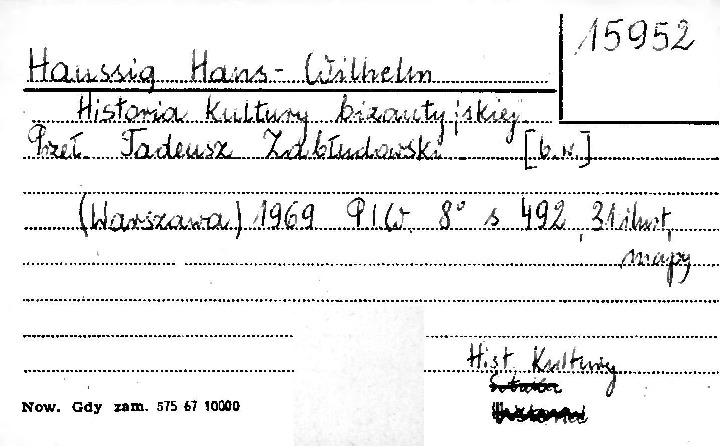 15952
Haussig Hans-Wilhelm
Historia Kultury bizantyjskiej.
Przeł. Tadeusz Zabłudowski. [b.w.]
(Warszawa) 1969 PIW. 8° s 492, 31 ilust,
mapy
Hist. Kultury
Sztuka
Now. Gdy zam. 575 67 10000